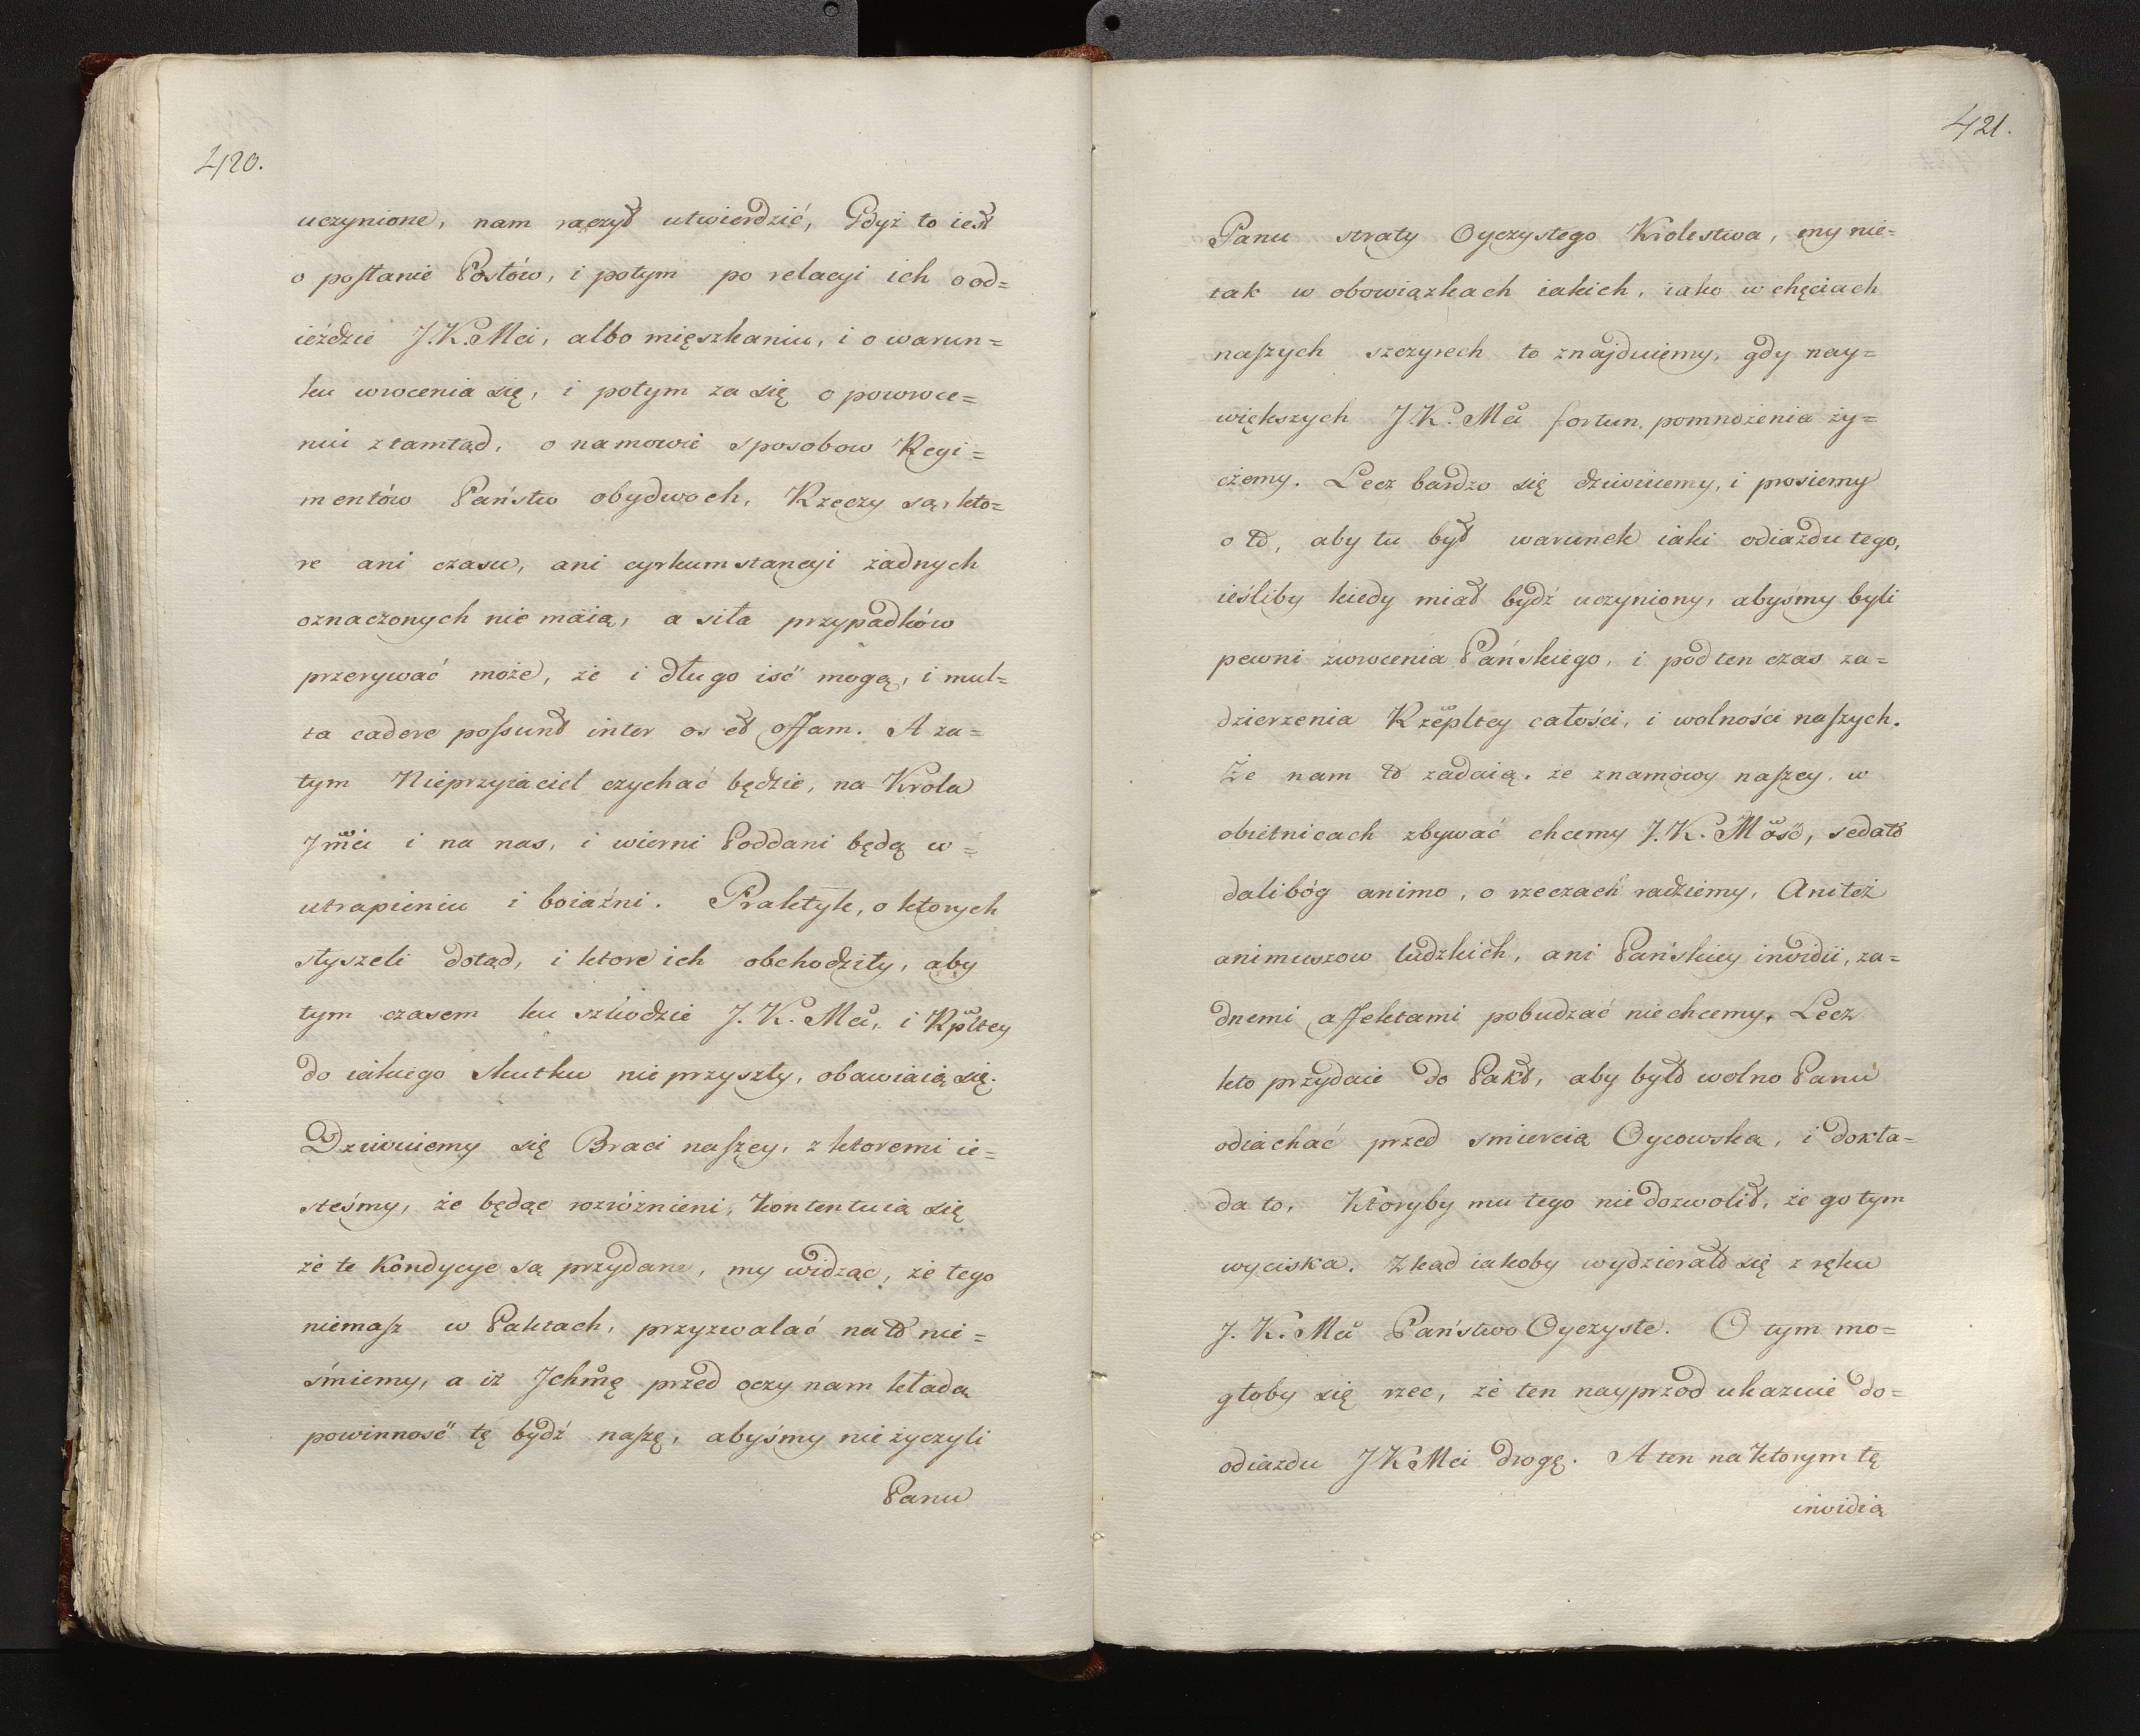 420.
uczynione, nam raczył utwierdzić, Gdyż to iest
o posłanie Posłów, i potym po relacyi ich o od=
ieździe J.K.Mci, albo mięszkaniu, i o warun=
ku wrocenia się, i potym za się o powroce=
niu ztamtąd, o namowie sposobow Regi=
mentów Państw obydwoch, Rzeczy są, kto=
re ani czasu, ani cyrkumstancyi żadnych
oznaczonych nie maią, a siła przypadków
przerywać może, że i długo iść mogą, i mul=
ta cadere possunt inter os et offam. A za=
tym Nieprzyiaciel czychać będzie, na Krola
Jmci i na nas, i wierni Poddani będą w=
utrapieniu i boiaźni. Praktyk, o ktorych
słyszeli dotąd, i ktore ich obchodziły, aby
tym czasem ku szkodzie J. K. Mci, i Rpltey
do iakiego skutku nie przyszły, obawiaią się.
Dziwuiemy się Braci naszey, z ktoremi ie=
steśmy, że będąc rozróżnieni, kontentuią się
że te Kondycye są przydane, my widząc, że tego
niemasz w Paktach, przyzwalać na to nie=
śmiemy, a iż Jchmę przed oczy nam kłada
powinność tę bydź naszę, abyśmy nie życzyli
Panu
421.
Panu straty Oyczystego Krolestwa, my nie=
tak w obowiązkach iakich, iako w chęciach
naszych szczyrech to znajduiemy, gdy nay=
większych J.K. Mci fortun pomnożenia ży=
czemy. Lecz bardzo się dziwuiemy, i prosiemy
o to, aby tu był warunek iaki odiazdu tego,
ieśliby kiedy miał bydź uczyniony, abyśmy byli
pewni zwrocenia Pańskiego, i pod ten czas za=
dzierzenia Rzepltey całości, i wolności naszych.
Że nam to zadaią, że znamowy naszey, w
obietnicach zbywać chcemy J. K. Mość, sedato
dalibóg animo, o rzeczach radziemy, Ani też
animuszow ludzkich, ani Pańskiey invidii, ża=
dnemi affektami pobudzać niechcemy. Lecz
kto przydaie do Pakt, aby było wolno Panu
odiachać przed smiercią Oycowska, i dokła=
da to, Ktoryby mu tego nie dozwolił, że go tym
wyciska. Zkąd iakoby wydzierało się z ręku
J. K. Mci Państwo Oyczyste. O tym mo=
głoby się rzec, że ten nayprzod ukazuie do=
odiazdu J K Mci drogę. A ten na ktorym tę
invidią